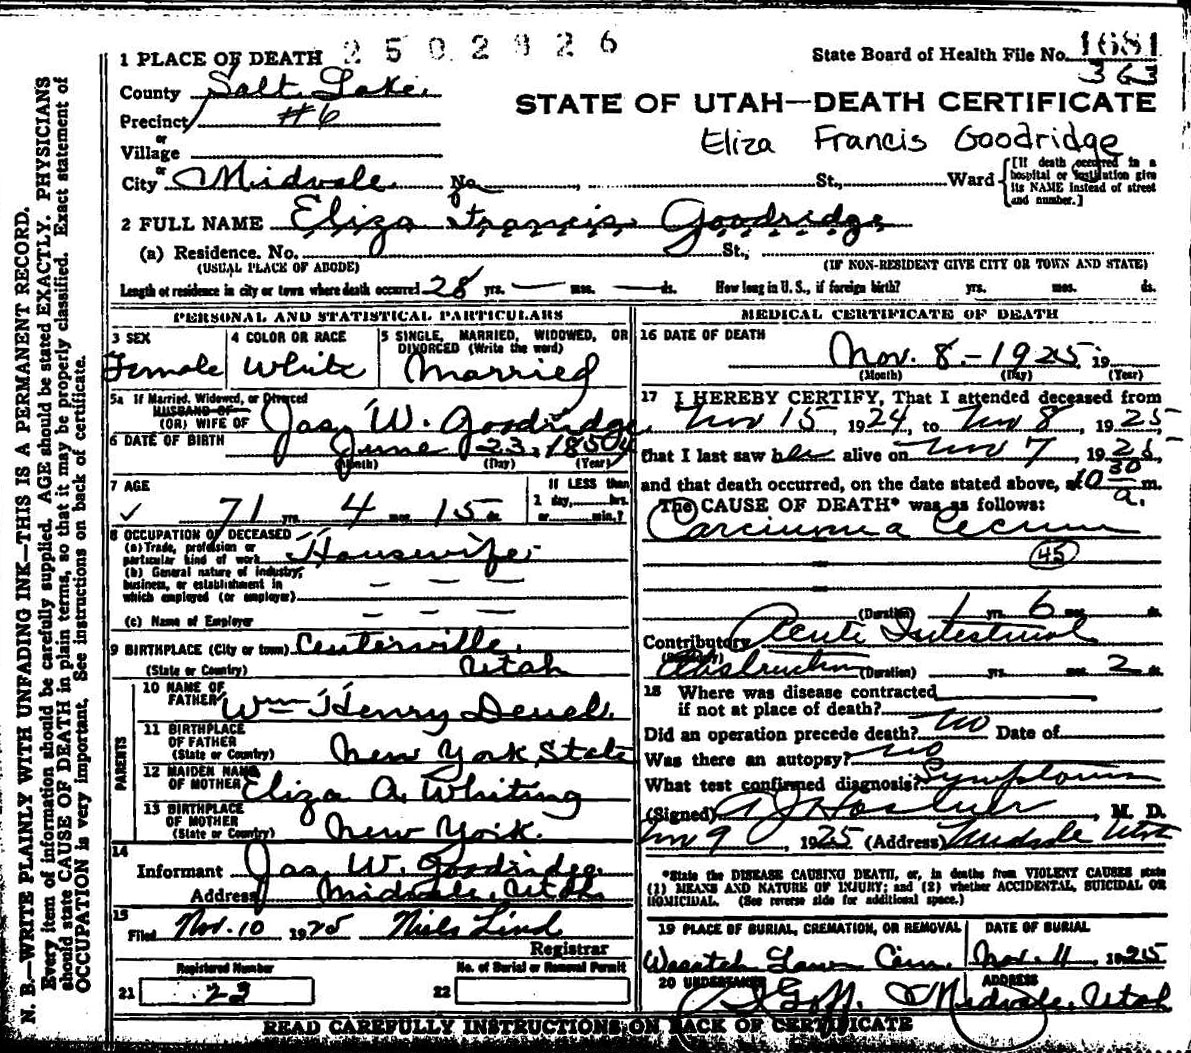 2502926
State Board of Health File No. 1681
363
1 PLACE OF DEATH
County Salt Lake
STATE OF UTAH—DEATH CERTIFICATE
Precinct #6
or
Village
Eliza Francis Goodridge
or
City Midvale No. St., Ward
[If death occurred in a hospital or institution give its NAME instead of street and number.]
2 FULL NAME Eliza Francis Goodridge
(a) Residence. No. St.,
(USUAL PLACE OF ABODE) (IF NON-RESIDENT GIVE CITY OR TOWN AND STATE)
Length of residence in city or town where death occurred 28 yrs. — mos. — ds. How long in U. S., if foreign birth? yrs. mos. ds.
PERSONAL AND STATISTICAL PARTICULARS
3 SEX 4 COLOR OR RACE 5 SINGLE, MARRIED, WIDOWED, OR DIVORCED (Write the word)
Female White Married
5a If Married, Widowed, or Divorced
HUSBAND OF
(OR) WIFE OF Jas. W. Goodridge
6 DATE OF BIRTH June 23, 1854
(Month) (Day) (Year)
7 AGE If LESS than
1 day, hrs.
✓ 71 yrs. 4 mos. 15 ds. or min.?
8 OCCUPATION OF DECEASED
(a) Trade, profession or
particular kind of work Housewife
(b) General nature of industry,
business, or establishment in
which employed (or employer) — — —
(c) Name of Employer — — —
9 BIRTHPLACE (City or town) Centerville,
(State or Country) Utah
PARENTS
10 NAME OF
FATHER Wm Henry Deuel.
11 BIRTHPLACE
OF FATHER
(State or Country) New York State
12 MAIDEN NAME
OF MOTHER Eliza A. Whiting
13 BIRTHPLACE
OF MOTHER
(State or Country) New York.
14
Informant Jas. W. Goodridge.
Address Midvale, Utah
15
Filed Nov. 10 1925 Niels Lind
Registrar
Registered Number No. of Burial or Removal Permit
21 23 22
MEDICAL CERTIFICATE OF DEATH
16 DATE OF DEATH
Nov. 8.—1925, 19
(Month) (Day) (Year)
17 I HEREBY CERTIFY, That I attended deceased from
Nov 15, 1924, to Nov 8, 1925
that I last saw her alive on Nov 7, 1925,
and that death occurred, on the date stated above, at 10 30 a. m.
The CAUSE OF DEATH* was as follows:
Carcinoma Cecum
45
(Duration) 1 yrs. 6 mos. ds.
Contributory Acute Intestinal
Obstruction (Duration) yrs. mos. 2 ds.
18 Where was disease contracted
if not at place of death?
Did an operation precede death? no Date of
Was there an autopsy? no
What test confirmed diagnosis? Symptoms
(Signed) , M. D.
Nov 9, 1925 (Address) Midvale Utah
*State the DISEASE CAUSING DEATH, or, in deaths from VIOLENT CAUSES state
(1) MEANS AND NATURE OF INJURY; and (2) whether ACCIDENTAL, SUICIDAL OR
HOMICIDAL. (See reverse side for additional space.)
19 PLACE OF BURIAL, CREMATION, OR REMOVAL DATE OF BURIAL
Wasatch Lawn Cem. Nov. 11, 1925
20 UNDERTAKER ADDRESS
Goff. Midvale, Utah
READ CAREFULLY INSTRUCTIONS ON BACK OF CERTIFICATE
N. B.—WRITE PLAINLY WITH UNFADING INK—THIS IS A PERMANENT RECORD.
Every item of information should be carefully supplied. AGE should be stated EXACTLY. PHYSICIANS
should state CAUSE OF DEATH in plain terms, so that it may be properly classified. Exact statement of
OCCUPATION is very important. See instructions on back of certificate.